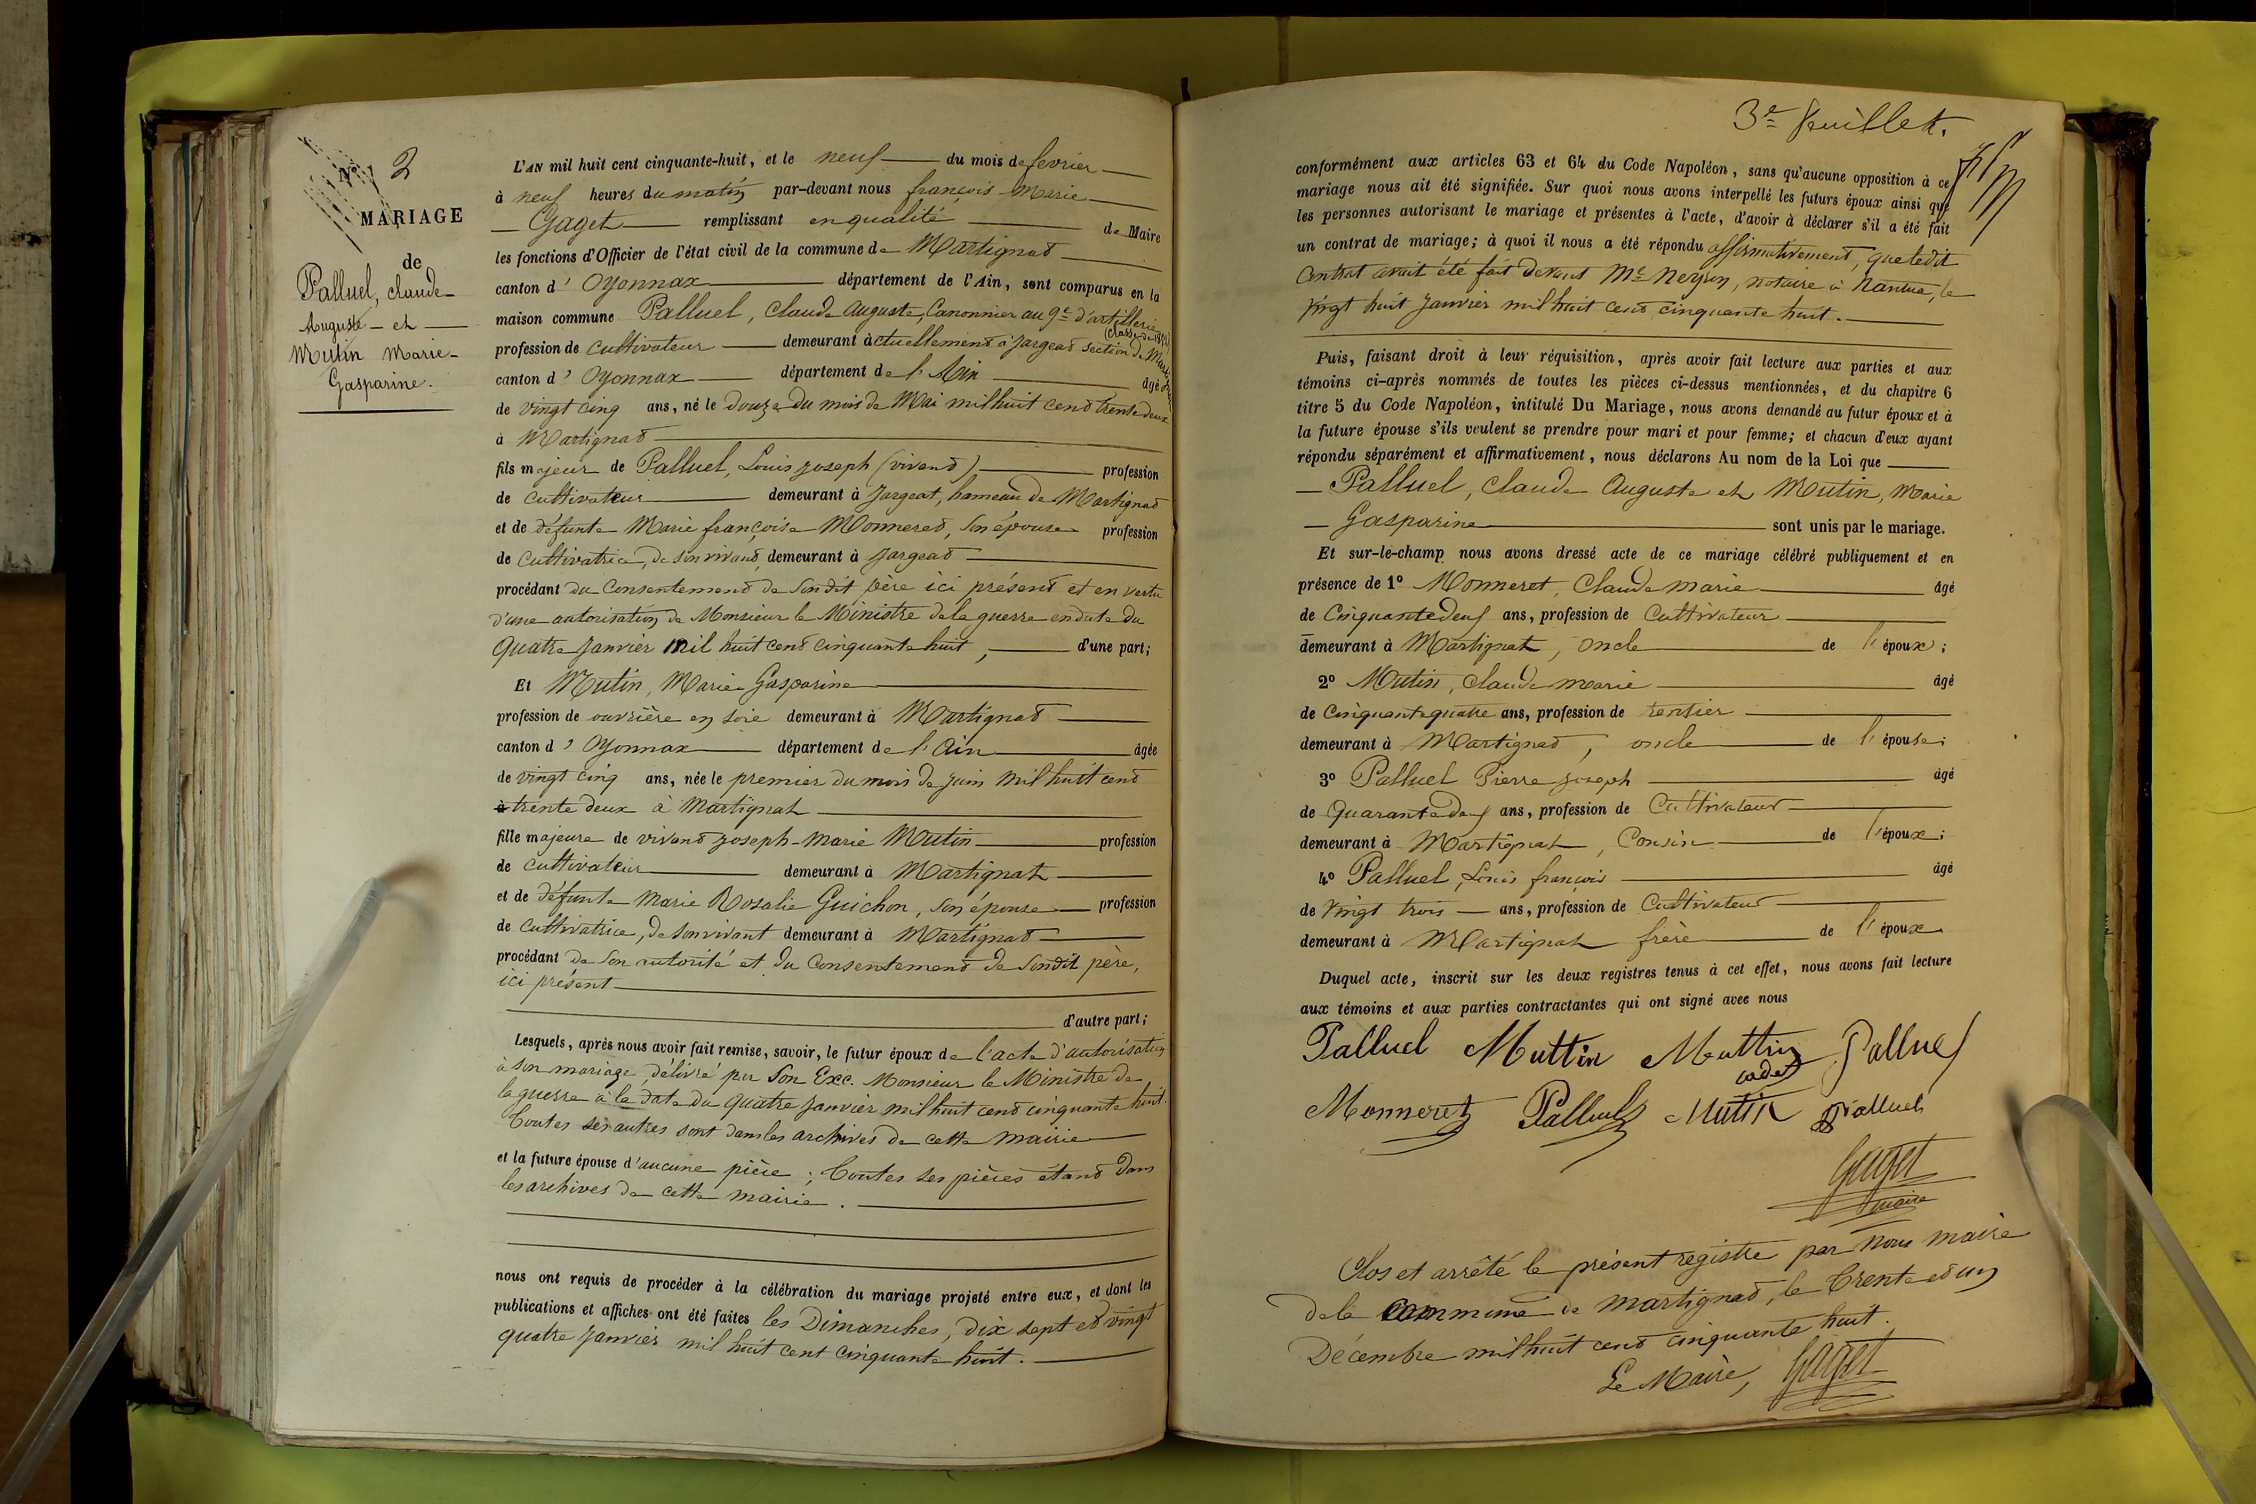 N° 2
MARIAGE
de
Palluel, claude
Auguste et
Mutin Marie
Gasparine.
L'AN mil huit cent cinquante-huit, et le neuf du mois de fevrier
à neuf heures du matin par-devant nous françois Marie
Gaget remplissant en qualité de Maire
les fonctions d'Officier de l'état civil de la commune de Martignat
canton d'Oyonnax département de l'Ain, sont comparus en la
maison commune Palluel, Claude Auguste, Canonnier au 9e d'artillerie
profession de cultivateur demeurant actuellement à Jargeat section de Martignat
canton d'Oyonnax département de l'Ain âgé
de vingt cinq ans, né le douze du mois de Mai mil huit cent trente deux
à Martignat
fils majeur de Palluel, Louis joseph (vivant) profession
de cultivateur demeurant à Jargeat, hameau de Martignat
et de défunte Marie françoise Monneret, son épouse profession
de cultivatrice, de son vivant, demeurant à Jargeat
procédant du Consentement de Sondit père ici présent et en vertu
d'une autorisation de Monsieur le Ministre de la guerre en date du
quatre Janvier mil huit cent cinquante huit, d'une part;
Et Mutin, Marie Gasparine
profession de ouvrière en soie demeurant à Martignat
canton d'Oyonnax département de l'Ain âgée
de vingt cinq ans, née le premier du mois de juin mil huit cent
à trente deux à Martignat
fille majeure de vivant joseph-Marie Mutin profession
de cultivateur demeurant à Martignat
et de défunte Marie Rosalie Guichon, son épouse profession
de cultivatrice, de son vivant demeurant à Martignat
procédant de son autorité et du Consentement de Sondit père,
ici présent
d'autre part;
Lesquels, après nous avoir fait remise, savoir, le futur époux de l'acte d'autorisation
à son mariage, délivré par Son Exc. Monsieur le Ministre de
la guerre à la date du quatre janvier mil huit cent cinquante huit.
Toutes ses autres sont dans les archives de cette mairie
et la future épouse d'aucune pièce; Toutes ses pièces étant dans
les archives de cette mairie.
nous ont requis de procéder à la célébration du mariage projeté entre eux, et dont les
publications et affiches ont été faites les Dimanches, dix sept et vingt
quatre janvier mil huit cent cinquante huit.
3e feuillet.
conformément aux articles 63 et 64 du Code Napoléon, sans qu'aucune opposition à ce
mariage nous ait été signifiée. Sur quoi nous avons interpellé les futurs époux ainsi que
les personnes autorisant le mariage et présentes à l'acte, d'avoir à déclarer s'il a été fait
un contrat de mariage; à quoi il nous a été répondu affirmativement, que ledit
Contrat avait été fait devant Me notaire à Nantua, le
vingt huit janvier mil huit cent cinquante huit.
Puis, faisant droit à leur réquisition, après avoir fait lecture aux parties et aux
témoins ci-après nommés de toutes les pièces ci-dessus mentionnées, et du chapitre 6
titre 5 du Code Napoléon, intitulé Du Mariage, nous avons demandé au futur époux et à
la future épouse s'ils veulent se prendre pour mari et pour femme; et chacun d'eux ayant
répondu séparément et affirmativement, nous déclarons Au nom de la Loi que
Palluel, Claude Auguste et Mutin, Marie
Gasparine sont unis par le mariage.
Et sur-le-champ nous avons dressé acte de ce mariage célébré publiquement et en
présence de 1° Monneret, Claude marie âgé
de Cinquante deux ans, profession de Cultivateur
demeurant à Martignat, oncle de l'époux;
2° Mutin, Claude marie âgé
de Cinquante quatre ans, profession de rentier
demeurant à Martignat, oncle de l'épouse;
3° Palluel Pierre joseph âgé
de Quarante ans, profession de Cultivateur
demeurant à Martignat, Cousin de l'époux;
4° Palluel, Louis françois âgé
de Vingt trois ans, profession de Cultivateur
demeurant à Martignat frère de l'époux.
Duquel acte, inscrit sur les deux registres tenus à cet effet, nous avons fait lecture
aux témoins et aux parties contractantes qui ont signé avec nous
Palluel Muttin Muttin cadet Palluel
Monneret Palluel Mutin Palluel
Gaget
maire
Clos et arrêté le présent registre par Nous maire
de la commune de Martignat, le trente et un
Décembre mil huit cent cinquante huit.
Le Maire, Gaget